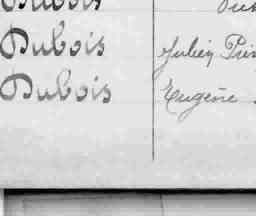 Dubois
Dubois Julien
Dubois Eugène